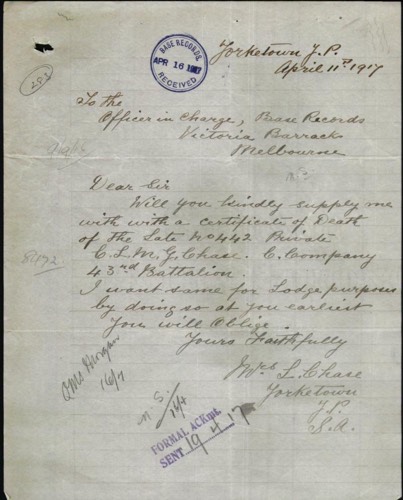 Yorketown Y.P.
April 11th 1917
BASE RECORDS.
APR 16 1917
RECEIVED
282
To the
Officer in Charge, Base Records
Victoria Barracks
Melbourne
Dear Sir
Will you kindly supply me
with with a certificate of Death
of the Late No 442 Private
C.L.M.G. Chase. C. Company
43rd Battalion.
I want same for Lodge purposes
by doing so at you earliest
You will Oblige.
Yours Faithfully
Mrs L. Chase
Yorketown
Y.P.
S.A.
16/4
FORMAL ACKmt.
SENT 19 4 17